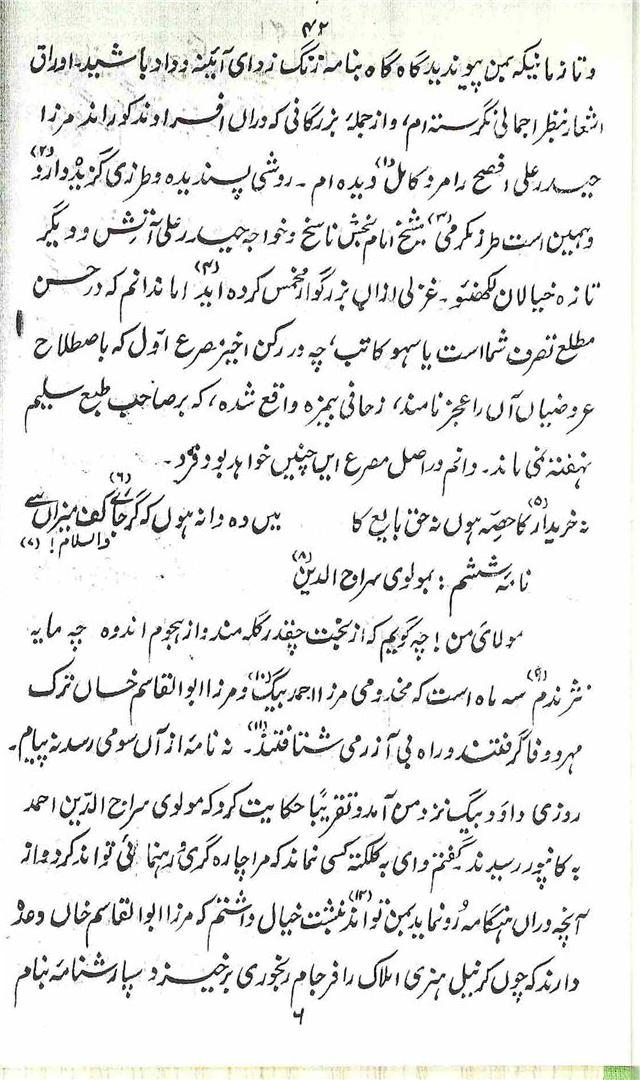 ۴۲
و تا زمانیکه بمن پیوندید گاه گاه بنامه زنگ زدای آئینهٔ وداد باشید۔ اوراق
اشعار بنظر اجمالی نگرسته ام، و از جملہ بزرگانی که دراں افراد مذکور اند مرزا
حیدر علی افصح را مرد کامل (۱) دیده ام۔ روشی پسندیده و طرزی گزیده دارد (۲)
و ہمین است طرز مکرمی (۳) شیخ امام بخش ناسخ و خواجہ حیدر علی آتش و دیگر
تازه خیالان لکھنؤ۔ غزلی ازاں بزرگوار مخمس کرده اید (۴) اما ندانم که در حسن
مطلع تصرف شما است یا سہو کاتب، چه در رکن اخیر مصرع اوّل که باصطلاح
عروضیاں آں را عجز نامند، زحافی بیمزه واقع شده، که بر صاحب طبع سلیم
نہفته نمی ماند۔ دانم در اصل مصرع این چنیں خواہد بود فرد۔
نہ خریدار (۵) کا حصّہ ہوں نہ حق بایع کا میں وہ دانہ ہوں کہ گر جائے (۶) کف میزاں سے
والسلام! (۷)
نامہٴ ششم : بمولوی سراج الدین (۸)
مولای من! چه گویم که از بخت چقدر گله مند و از ہجوم اندوه چه مایہ
نژندم (۹) سہ ماه است که مخدومی مرزا احمد بیگ (۱۰) و مرزا ابو القاسم خاں ترک
مہر و وفا گرفتند و راه بی آزرمی شتافتند (۱۱)۔ نہ نامه از آں سو می رسد نہ پیام۔
روزی داؤد بیگ نزد من آمد و تقریباً حکایت کرد که مولوی سراج الدّین احمد
به کانپور رسیدند گفتم وای به کلکتہ کسی نماند که مرا چاره گری و رہنمائی تواند کرد و از
آنچه دراں ہنگامه رُو نماید بمن تواند نبشت (۱۲) خیال داشتم که مرزا ابو القاسم خاں وعده
دارند که چوں کرنیل ہنری املاک را فرجام رنجوری برخیزد سپارشنامه بنام
۶